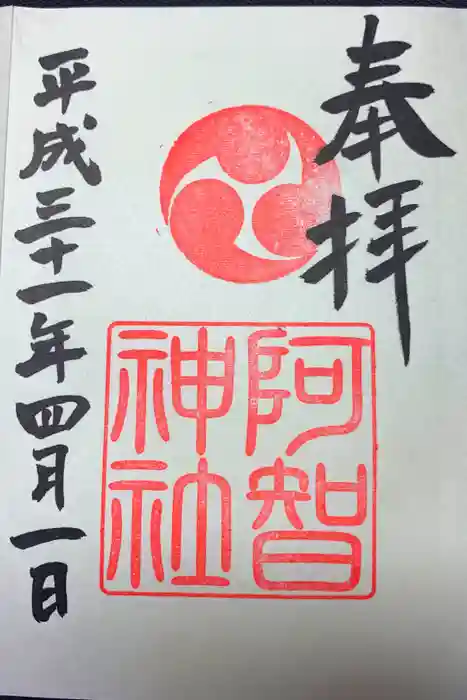 奉拝
阿智
神社
平成三十一年四月一日